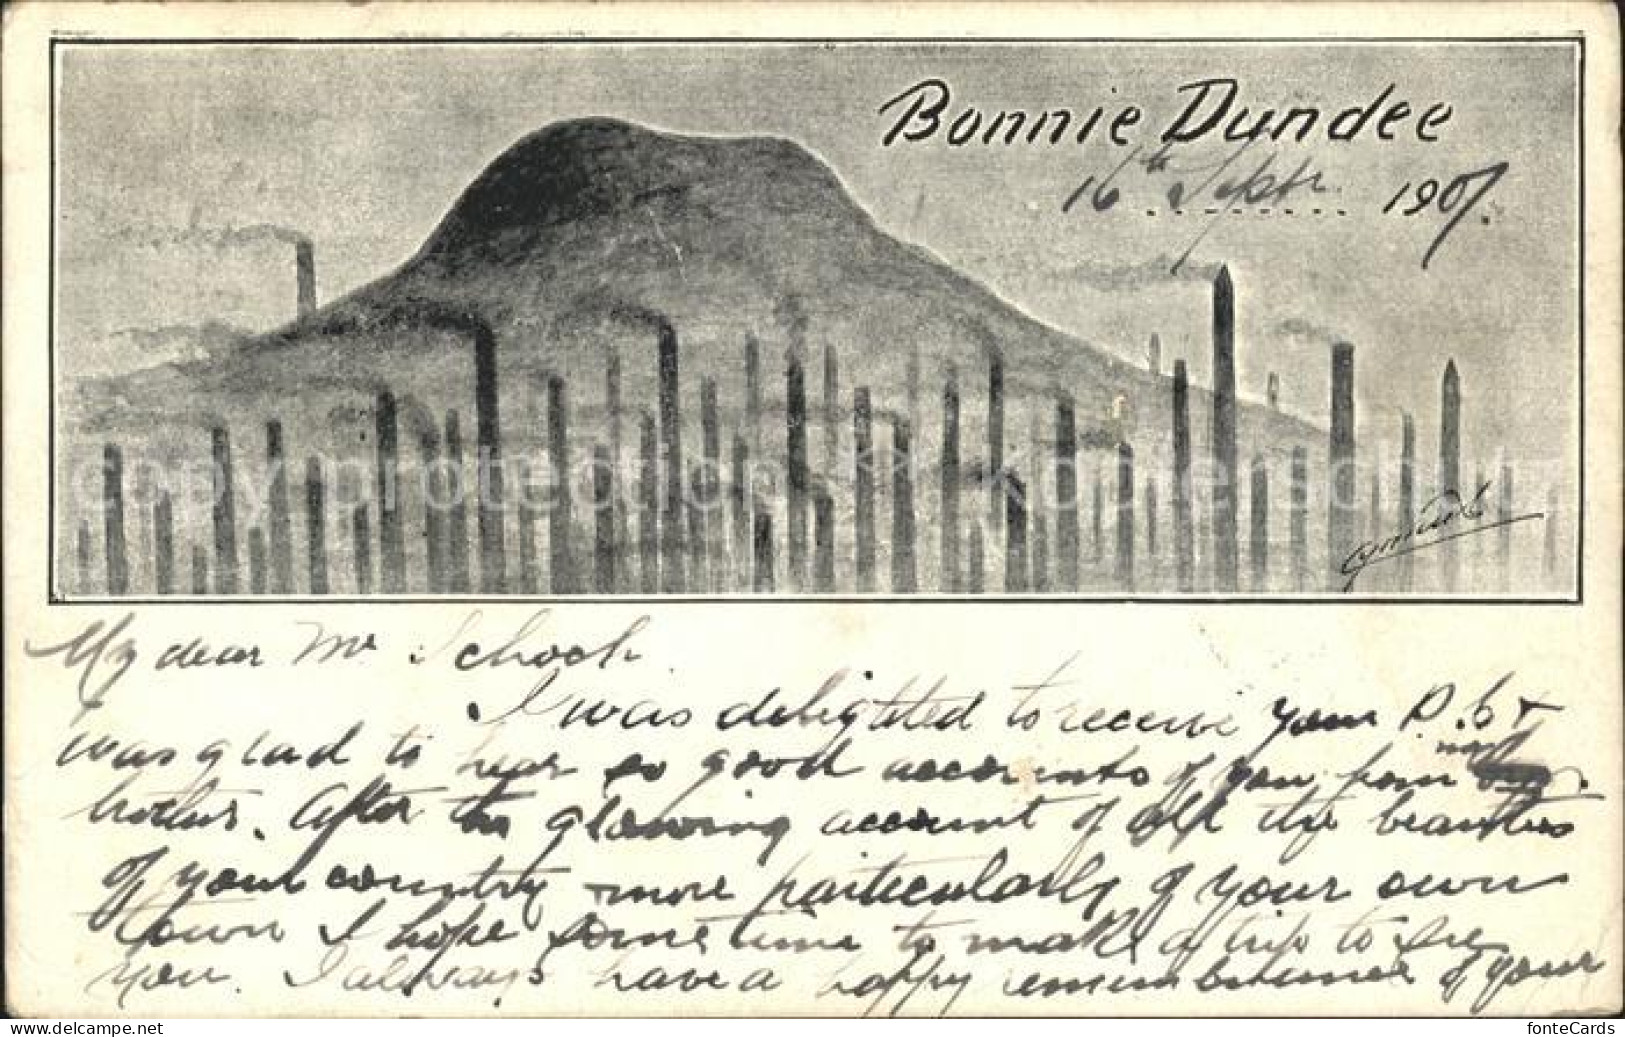 Bonnie Dundee
16th Sept. 1901.
copy protection Kopierschutz
My dear Mr Schoch
I was delighted to receive your P.C. &
was glad to hear so good accounts of you from
mother. After the glowing account of all the beauties
of your country more particularly of your own
town I hope some time to make a trip to see
you. I always have a happy remembrance of your
fonteCards